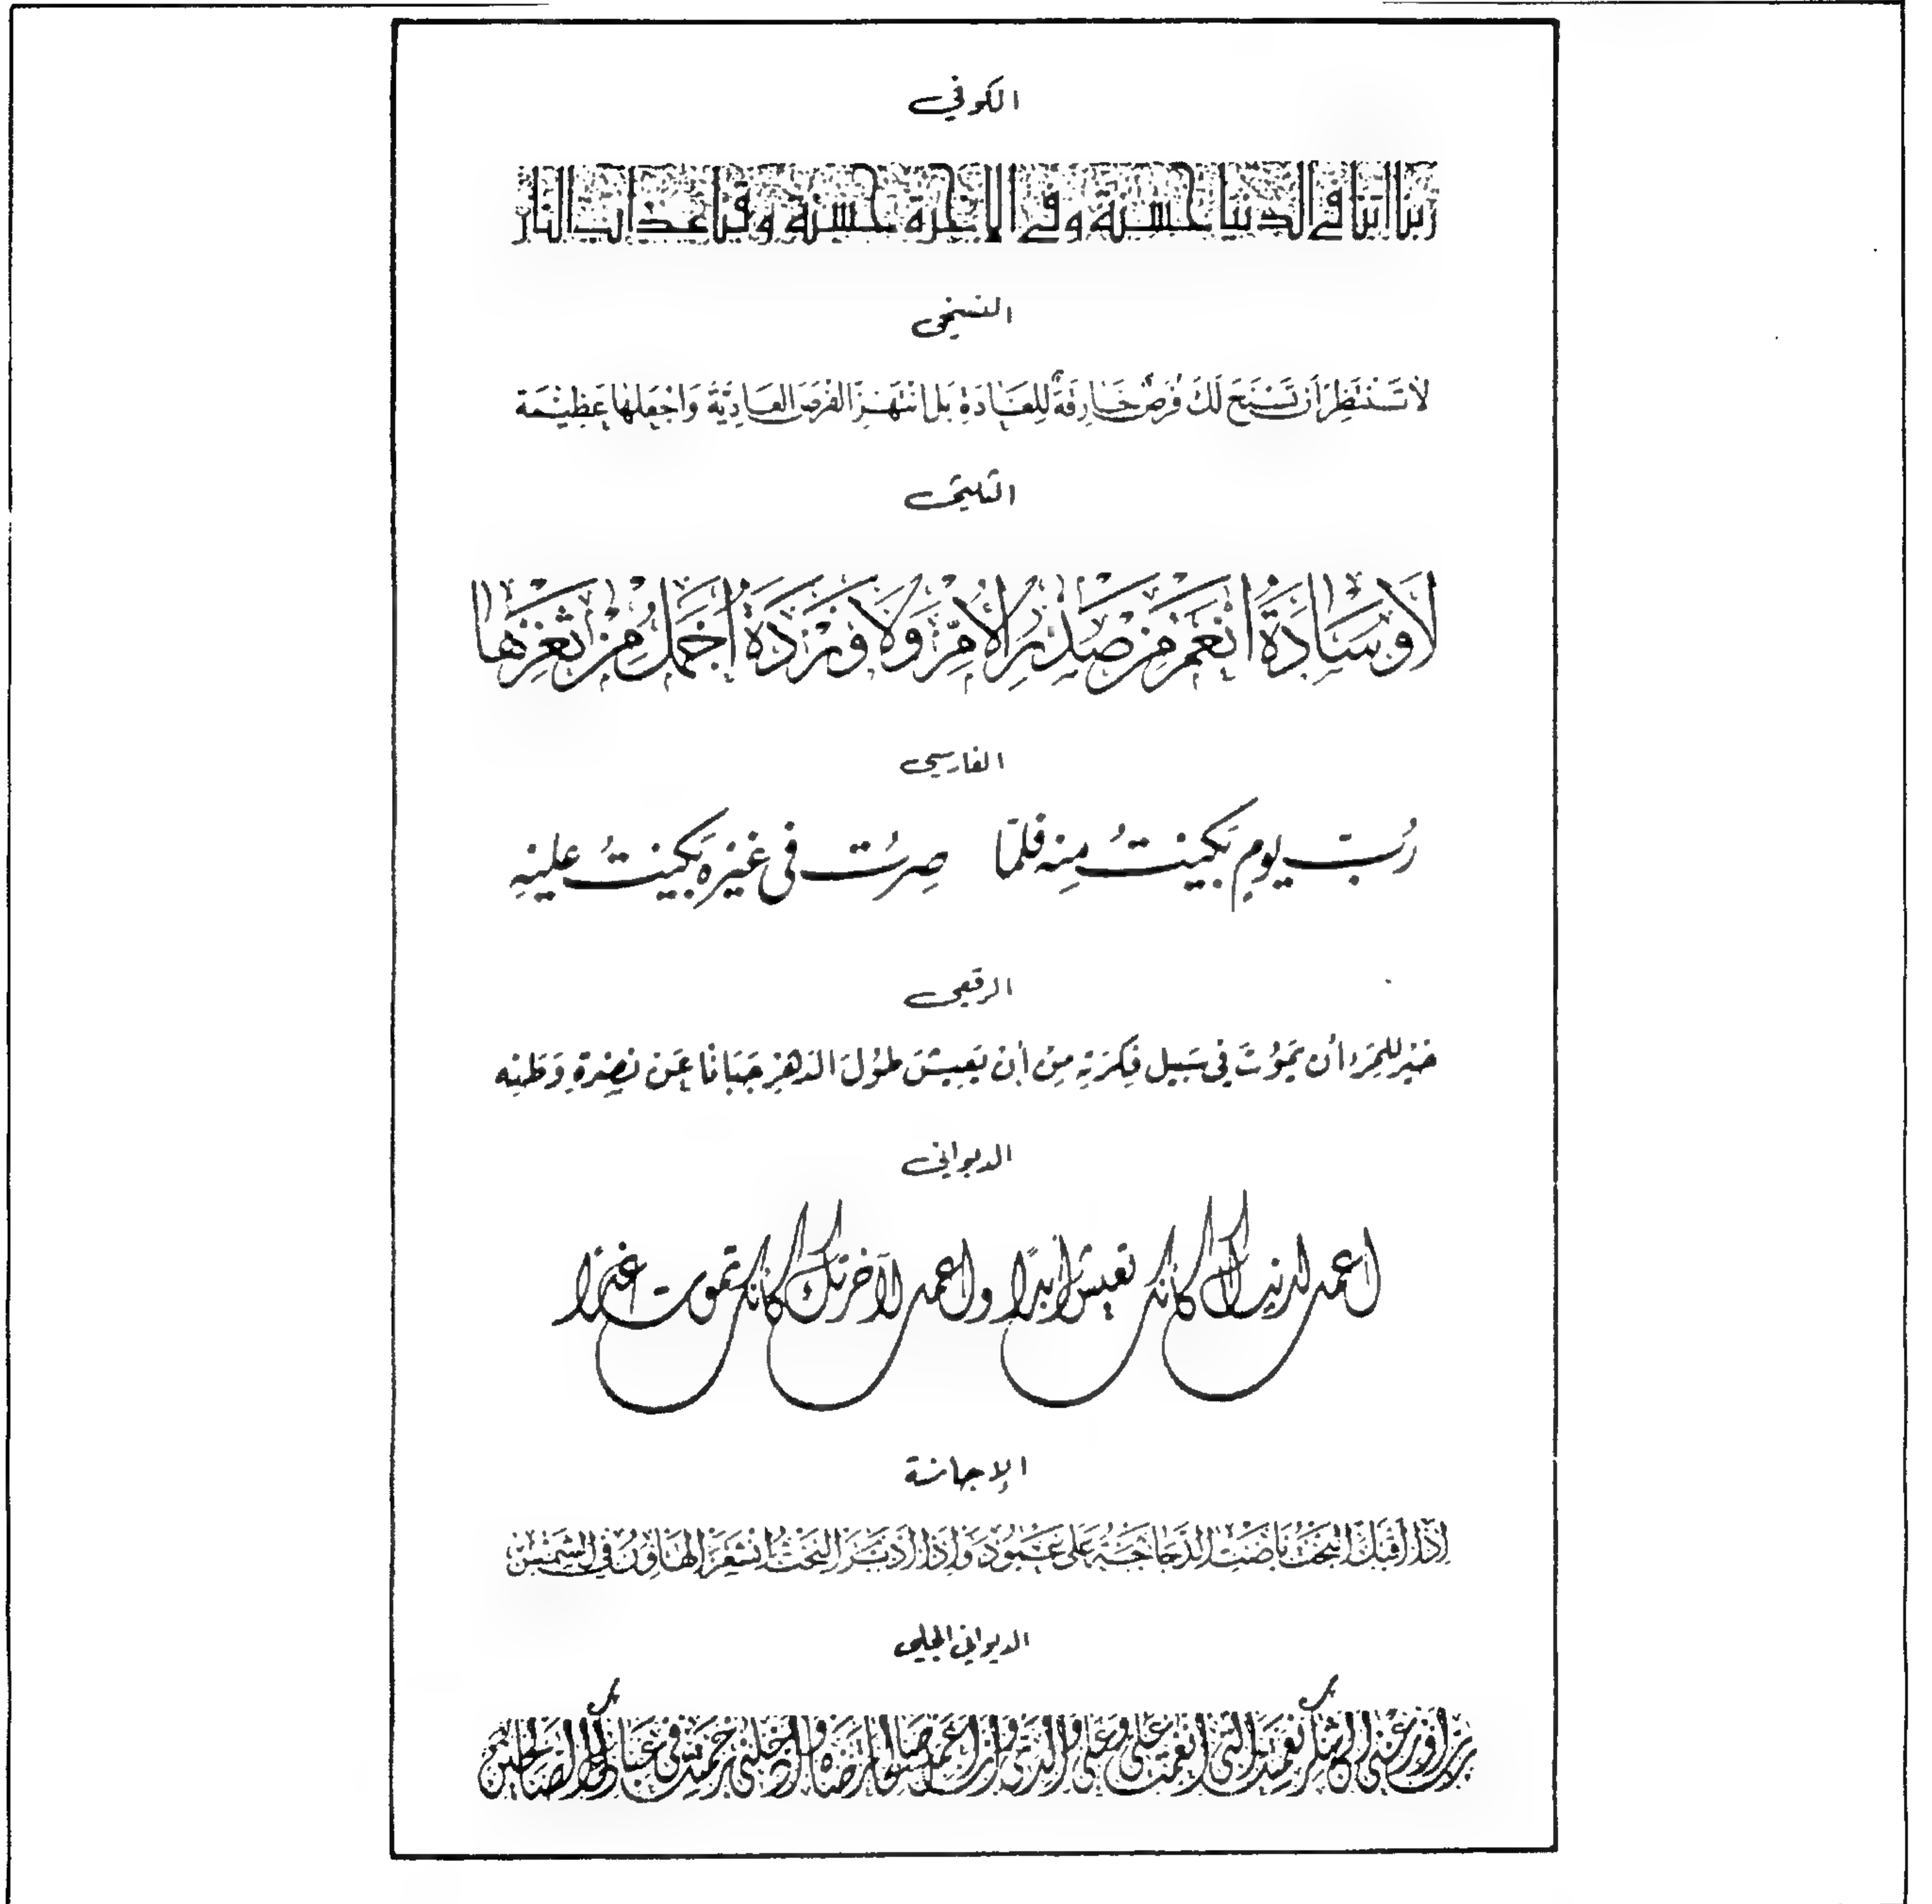 الكوفي
ربنا اتنا في الدنيا حسنة وفي الاخرة حسنة وقنا عذاب النار
النسخي
لَا تَنْتَظِرْ أَنْ تَسْنَحَ لَكَ فُرَصٌ خَارِقَةٌ لِلْعَادَةِ بَلِ انْتَهِزِ الْفُرَصَ الْعَادِيَّةَ وَاجْعَلْهَا عَظِيْمَة
الثلثي
لَا وِسَادَةَ أَنْعَمُ مِنْ صَدْرِ الْأُمِّ وَلَا وَرْدَةَ أَجْمَلُ مِنْ ثَغْرِهَا
الفارسي
رُبَّ يومٍ بَكيْتُ مِنْه فلمّا صِرْتُ في غَيْرِهِ بَكيْتُ عليْهِ
الرقعي
خَيْر للمَرْءِ أن يَمُوْتَ في سَبيل فِكرَتِهِ مِنْ أنْ يَعِيْشَ طُوْلَ الدَهْرِ جَبَانًا عَنْ نُصْرَةِ وَطَنِه
الديواني
اعمل لدنياك كأنك تعيش أبدًا واعمل لآخرتك كأنك تموت غدًا
الإجازة
إِذَا أَقْبَلَ الْبَخْتُ بَاضَتِ الدَّجَاجَةُ عَلَى عَمُوْدٍ وَإِذَا أَدْبَرَ الْبَخْتُ انْشَعَرَ الهَاوِنُ فِي الشَّمْسِ
الديواني الجلي
رب أوزعني أن أشكر نعمتك التي أنعمت علي وعلى والدي وأن أعمل صالحا ترضاه وأدخلني برحمتك في عبادك الصالحين